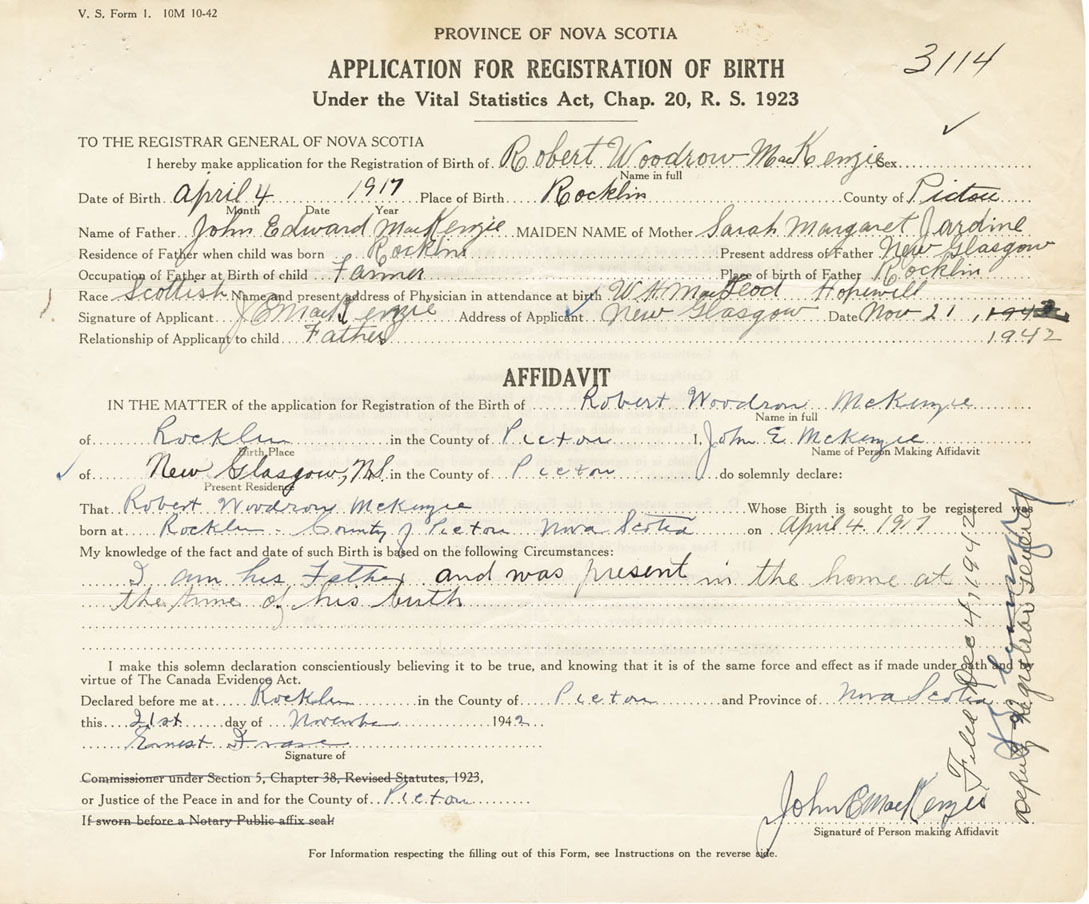 V. S. Form 1. 10M 10-42
PROVINCE OF NOVA SCOTIA
3114
APPLICATION FOR REGISTRATION OF BIRTH
Under the Vital Statistics Act, Chap. 20, R. S. 1923
TO THE REGISTRAR GENERAL OF NOVA SCOTIA
I hereby make application for the Registration of Birth of Robert Woodrow MacKenzie Sex
Name in full
Date of Birth April 4 1917 Place of Birth Rocklin County of Pictou
Month Date Year
Name of Father John Edward MacKenzie MAIDEN NAME of Mother Sarah Margaret Jardine
Residence of Father when child was born Rocklin Present address of Father New Glasgow
Occupation of Father at Birth of child Farmer Place of birth of Father Rocklin
Race Scottish Name and present address of Physician in attendance at birth W. H. MacLeod Hopewell
Signature of Applicant J E MacKenzie Address of Applicant New Glasgow Date Nov 21, 1942
Relationship of Applicant to child Father 1942
AFFIDAVIT
IN THE MATTER of the application for Registration of the Birth of Robert Woodrow McKenzie
Name in full
of Rocklin in the County of Pictou I, John E. McKenzie
Birth Place Name of Person Making Affidavit
of New Glasgow, N.S. in the County of Pictou do solemnly declare:
Present Residence
That Robert Woodrow McKenzie Whose Birth is sought to be registered was
born at Rocklin - County of Pictou Nova Scotia on April 4. 1917
My knowledge of the fact and date of such Birth is based on the following Circumstances:
I am his Father and was present in the home at
the time of his birth
I make this solemn declaration conscientiously believing it to be true, and knowing that it is of the same force and effect as if made under oath and by
virtue of The Canada Evidence Act.
Declared before me at Rocklin in the County of Pictou and Province of Nova Scotia
this 21st day of November 1942
Ernest Fraser
Signature of
Commissioner under Section 5, Chapter 38, Revised Statutes, 1923,
or Justice of the Peace in and for the County of Pictou
If sworn before a Notary Public affix seal
John E MacKenzie
Signature of Person making Affidavit
For Information respecting the filling out of this Form, see Instructions on the reverse side.
Filed Dec 4, 1942
Deputy Registrar General